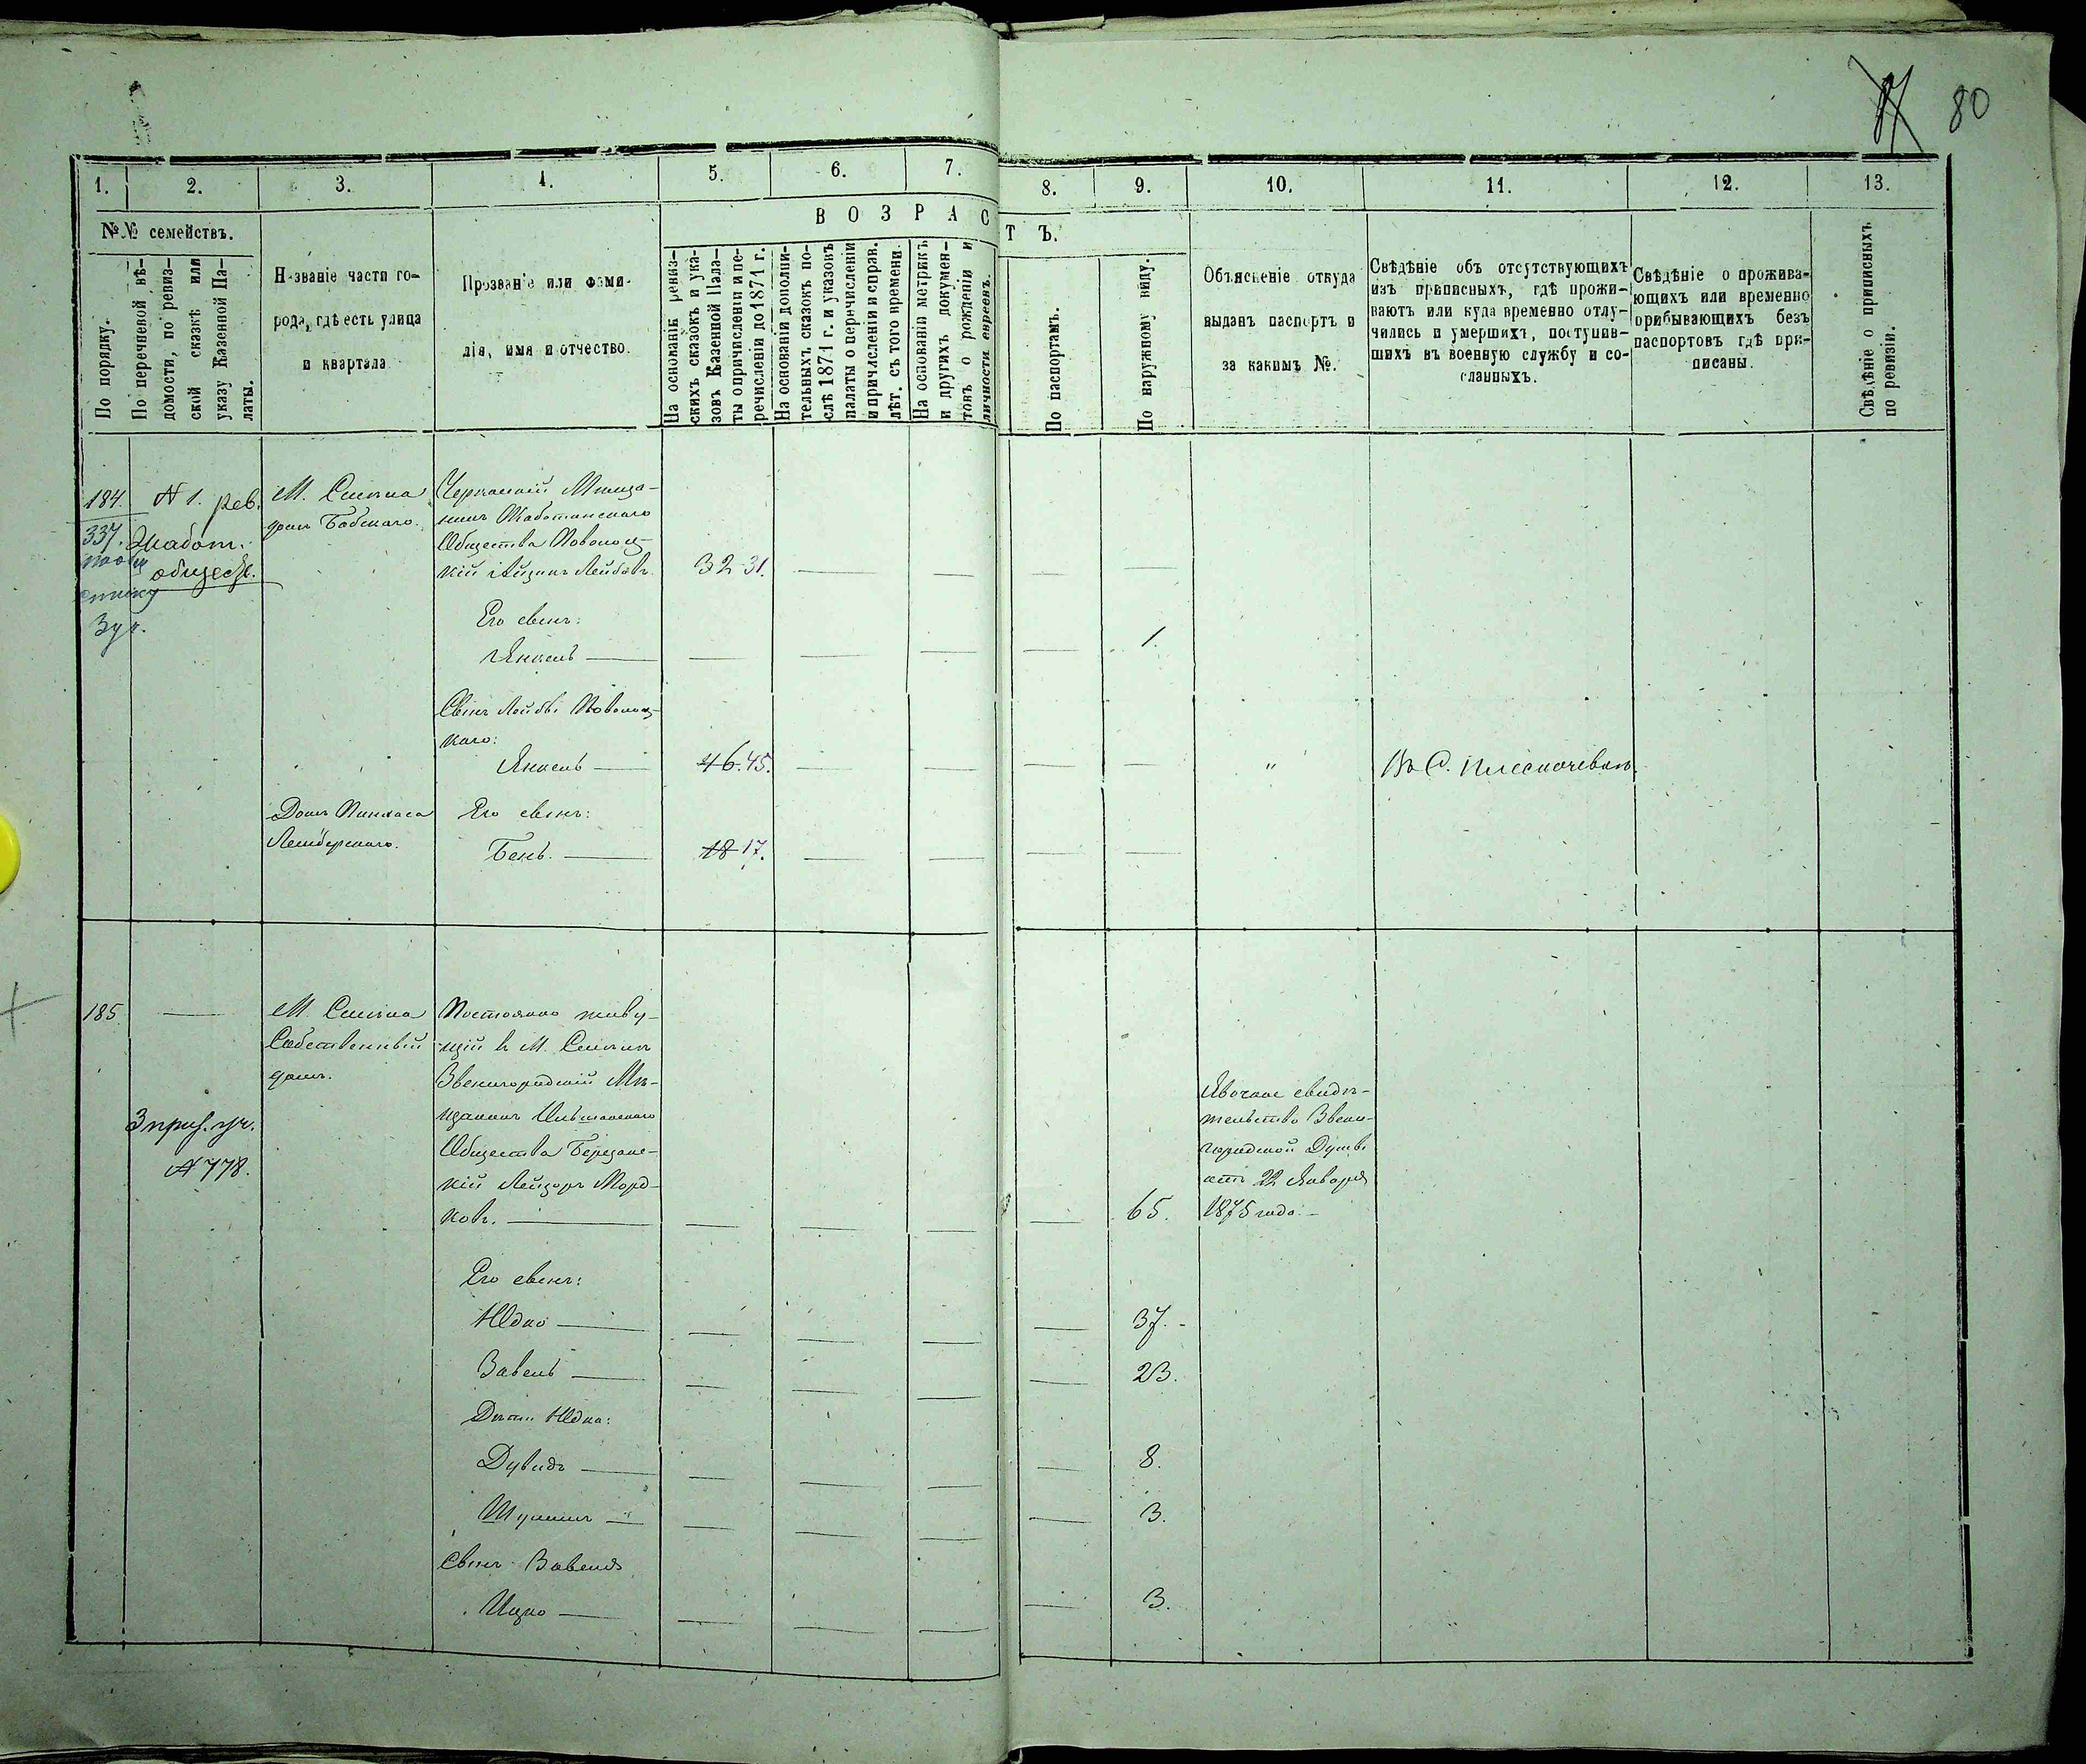 80
1.
2.
3.
4.
5.
6.
7.
8.
9.
10.
11.
12.
13.
№№ семействъ.
По порядку.
По перечневой вѣ-
домости, по ревиз-
ской сказкѣ или
указу Казенной Па-
латы.
Названіе части го-
рода, гдѣ есть улица
и квартала
Прозваніе или фами-
лія, имя и отчество.
ВОЗРАСТЪ.
На основаніи ревиз-
скихъ сказокъ и ука-
зовъ Казенной Пала-
ты о причисленіи и пе-
речисленіи до 1871 г.
На основаніи дополни-
тельныхъ сказокъ по-
слѣ 1871 г. и указовъ
палаты о перечисленіи
и причисленіи и справ.
лѣт. съ того времени.
На основаніи метрикъ
и другихъ докумен-
товъ о рожденіи и
личности евреевъ.
По паспортамъ.
По наружному виду.
Объясненіе откуда
выданъ паспортъ и
за какимъ №.
Свѣдѣніе объ отсутствующихъ
изъ приписныхъ, гдѣ прожи-
ваютъ или куда временно отлу-
чились и умершихъ, поступив-
шихъ въ военную службу и со-
сланныхъ.
Свѣдѣніе о прожива-
ющихъ или временно
прибывающихъ безъ
паспортовъ гдѣ при-
писаны.
Свѣдѣніе о приписныхъ
по ревизіи.
184.
337.
3 уч.
№ 1. рев.
Жабот.
обществ.
М. Смѣла
домъ Бобскаго.
Черкаскій Мѣща-
нинъ Жаботинскаго
Общества Поволоц-
кій Айзикъ Лейбовъ
32 31.
Его сынъ:
Янкель
1.
Сынъ Лейбы Поволоц-
каго:
Янкель
46. 45.
"
Въ С. Плескачевкѣ
Домъ Пинхаса
Лембергскаго.
Его сынъ:
Бень.
18 17.
185
М. Смѣла
Собственный
домъ.
3 приз. уч.
№ 778.
Постоянно живу-
щій въ М. Смѣлѣ
Звенигородскій Мѣ-
щанинъ Ольшанскаго
Общества Березанс-
кій Лейзоръ Морд-
ковъ.
65.
Явочное свидѣ-
тельство Звени-
городской Думы
отъ 22 Января
1875 года.
Его сынъ:
Юдко
37.
Вавель
23.
Дѣти Юдка:
Дувидъ
8.
Шулимъ
3.
Сынъ Вавеля
Ицко
3.